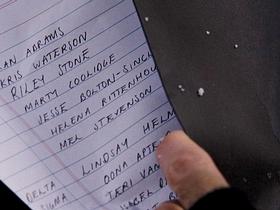 ABRAMS
KRIS WATERSON
RILEY STONE
MARTY COOLIDGE
JESSE BOLTON-SINCL
HELENA RITTENHOU
MEL STEVENSON
LINDSAY HELM
OONA APTE
TERI VAN
DELTA